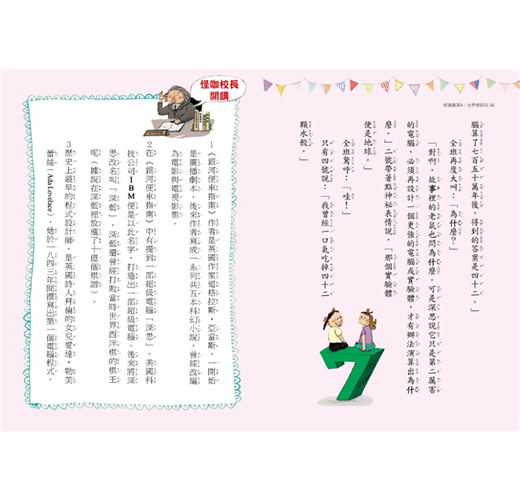 腦算了七百五十萬年後，得到的答案是四十二。」
全班再度大叫：「為什麼？」
「對啊，故事裡的老鼠也問為什麼。可是深思說它只是第二厲害
的電腦，必須再設計一個更強的電腦或實驗體，才有辦法演算出為什
麼。」二號帶著點神祕表情說，「那個實驗體
便是地球。」
全班驚呼：「哇！」
只有四號說：「我曾經一口氣吃掉四十二
顆水餃。」
7
怪咖校長
開講
1《銀河便車指南》作者是英國作家道格拉斯．亞當斯，一開始
是廣播劇本，後來作者寫成一系列共五本科幻小說，曾經改編
為電影與電視影集。
2在《銀河便車指南》中有提到一部超級電腦「深思」。美國科
技公司IBM便是以此名字，打造出一部超級電腦。後來將深
思改名叫「深藍」，深藍還曾經打敗當時世界西洋棋的棋王
呢（據說在深藍裡放進了十億個棋譜）。
3歷史上最早的程式設計師，是英國詩人拜倫的女兒愛達．勒芙
蕾絲（Ada Lovelace），她於一八四三年間撰寫出第一個電腦程式。